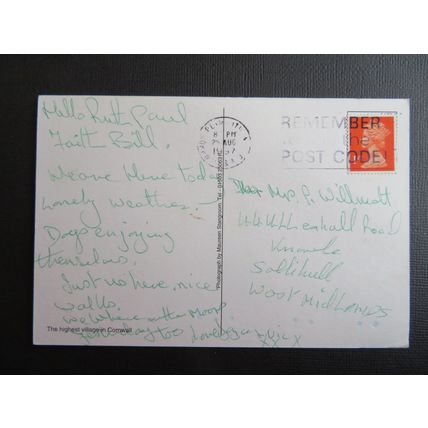 Hello Ruth Paul
Faith Bill.
We come here today
lovely weather. —
Dogs enjoying
themselves.
Just us here, nice
walks.
We where on the Moor
yesterday too Love
xxx
The highest village in Cornwall
Photograph by Maureen Stangroom.
8 PM
AUG
REMEMBER
POST CODE
Mr P. Willmott
Road
Knowle
Solihull
West Midlands